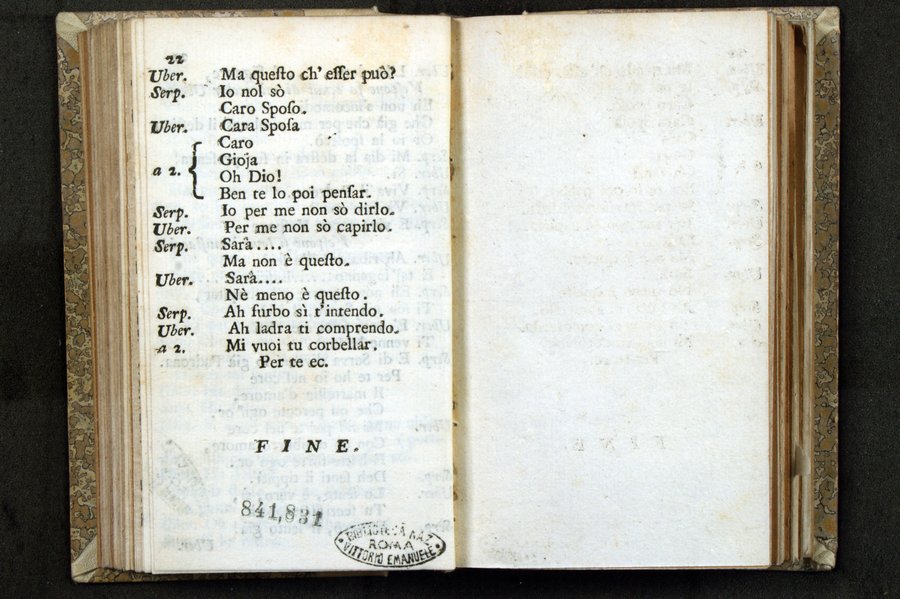 22
Uber. Ma queſto ch' eſſer può?
Serp. Io nol sò
Caro Spoſo.
Uber. Cara Spoſa
Caro
Gioja
a 2. Oh Dio!
Ben te lo poi penſar.
Serp. Io per me non sò dirlo.
Uber. Per me non sò capirlo.
Serp. Sarà....
Ma non è queſto.
Uber. Sarà....
Nè meno è queſto.
Serp. Ah furbo sì t'intendo.
Uber. Ah ladra ti comprendo.
a 2. Mi vuoi tu corbellar.
Per te ec.
FINE.
841,831
BIBLIOTECA NAZ.
ROMA
VITTORIO EMANUELE